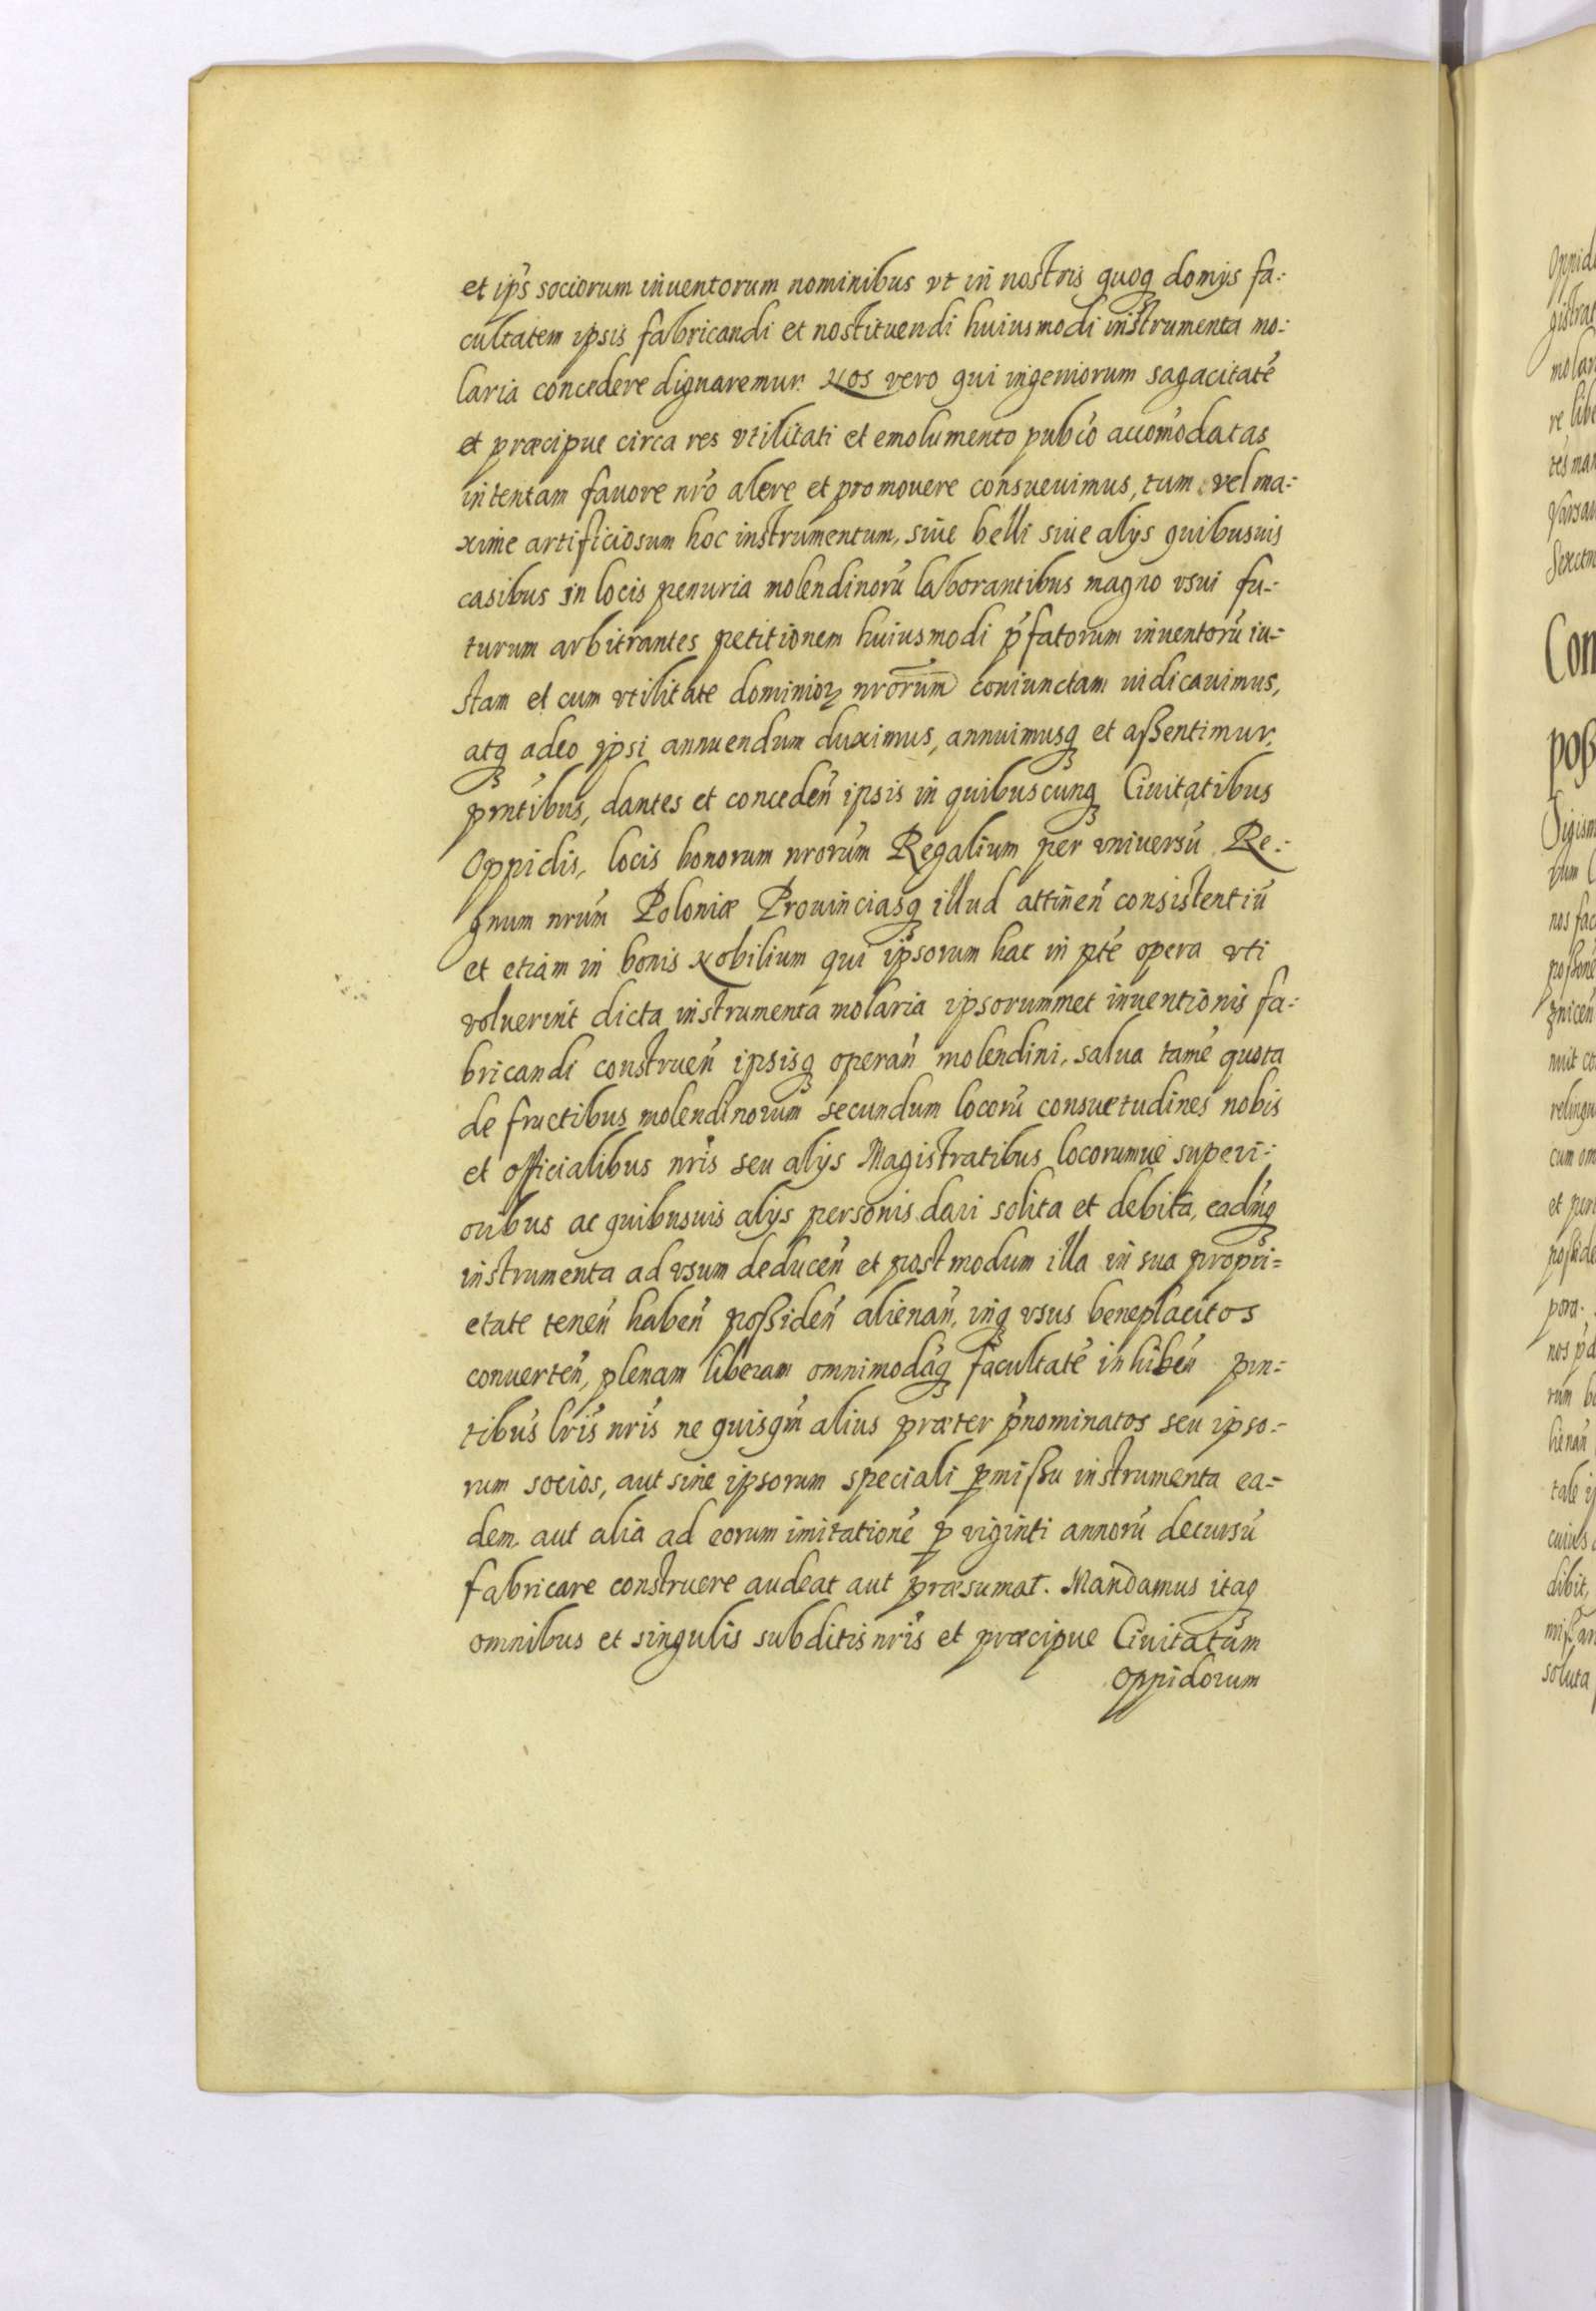 et ip̃s sociorum inuentorum nominibus vt in nostris quoq̃ domijs fa-
cultatem ipsis fabricandi et nostituendi huiusmodi instrumenta mo-
laria concedere dignaremur. Nos vero qui ingeniorum sagacitatẽ
et præcipue circa res vtilitati et emolumento pubc̃o accom̃odatas
intentam fauore nr̃o alere et promouere consueuimus, tum vel ma-
xime artificiosum hoc instrumentum, siue belli siue alijs quibusuis
casibus in locis penuria molendinorũ laborantibus magno vsui fu-
turum arbitrantes petitionem huiusmodi p̃fatorum inuentorũ iu-
stam et cum vtilitate dominioꝝ nr̃orum coniunctam iudicauimus,
atq̃ adeo ipsi annuendum duximus, annuimusq̃ et aßentimur.
pñtibus, dantes et conceden̄ ipsis in quibuscunq̃ Ciuitatibus
Oppidis, locis bonorum nr̃orum Regalium per vniuersũ Re-
gnum nr̃um Poloniæ Prouinciasq̃ illud attinen̄ consistentiũ
et etiam in bonis Nobilium qui ipsorum hac in pt̃e opera vti
voluerint dicta instrumenta molaria ipsorummet inuentionis fa-
bricandi construen̄ ipsisq̃ operan̄ molendini, salua tamẽ quota
de fructibus molendinorum secundum locorũ consuetudines nobis
et officialibus nr̃is seu alijs Magistratibus locorumue superi-
oribus ac quibusuis alijs personis dari solita et debita, eadẽq̃
instrumenta ad vsum deducen̄ et postmodum illa in sua propri-
etate tenen̄ haben̄ poßiden̄ alienan̄, inq̃ vsus beneplacitos
conuerten̄, plenam liberam omnimodãq̃ facultatẽ inhiben̄ pn̄-
tibus lr̃is nr̃is ne quisq̃m alius præter p̃nominatos seu ipso-
rum socios, aut sine ipsorum speciali ꝑmißu instrumenta ea-
dem aut alia ad eorum imitationẽ ꝑ viginti annorũ decursũ
fabricare construere audeat aut præsumat. Mandamus itaq̃
omnibus et singulis subditis nr̃is et præcipue Ciuitatum
Oppidorum